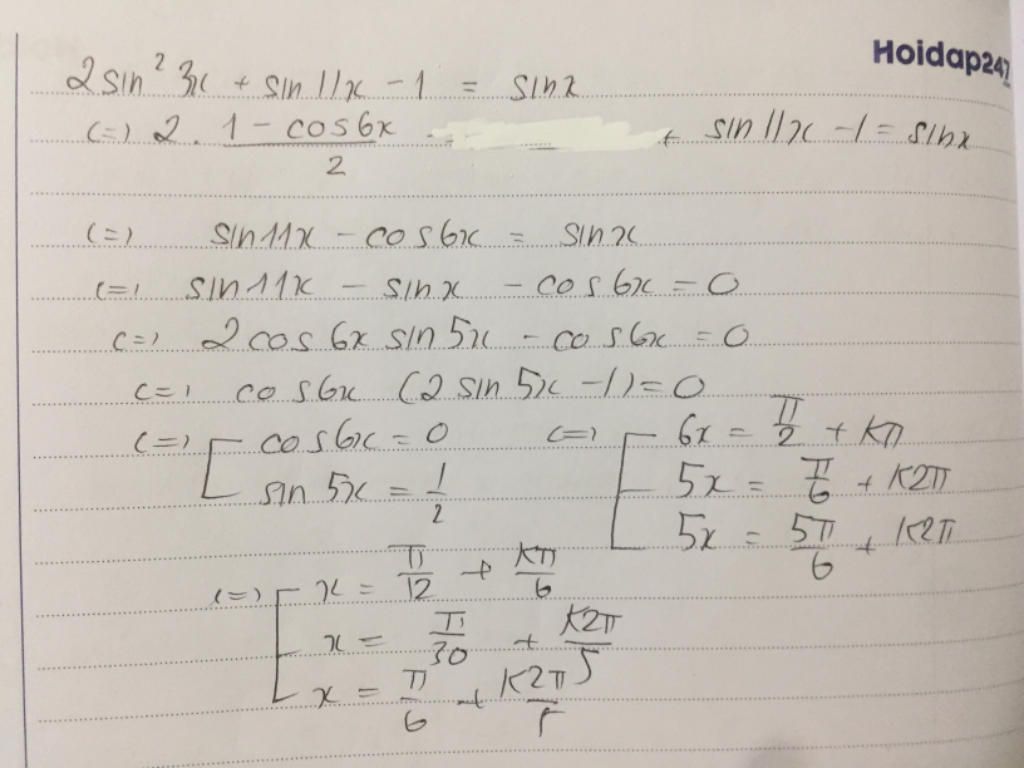 Hoidap247
2 sin² 3x + sin 11x - 1 = sinx
(=) 2 . (1 - cos6x)/2 + sin 11x - 1 = sinx
(=) sin11x - cos6x = sinx
(=) sin11x - sinx - cos6x = 0
(=) 2cos6x sin5x - cos6x = 0
(=) cos6x (2 sin 5x - 1) = 0
(=) [ cos6x = 0 (=) [ 6x = π/2 + kπ
sin 5x = 1/2 5x = π/6 + k2π
5x = 5π/6 + k2π
(=) [ x = π/12 + kπ/6
x = π/30 + k2π/5
x = π/6 + k2π/5